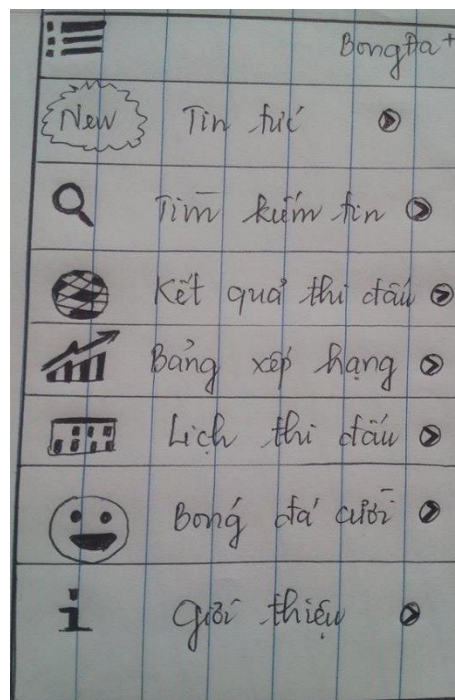 BongĐa+
New Tin tức
Tìm kiếm tin
Kết quả thi đấu
Bảng xếp hạng
Lịch thi đấu
Bóng đá cười
i Giới thiệu